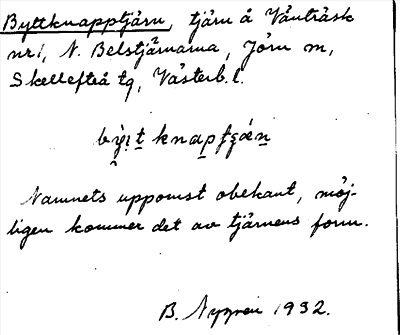 Byttknapptjärn, tjärn å Vånträsk
nr 1, N. Belstjärnarna, Jörn sn,
Skellefteå tg, Västerb. l.
Namnets uppomst obekant, möj-
ligen kommer det av tjärnens form.
B. Nygren 1932.